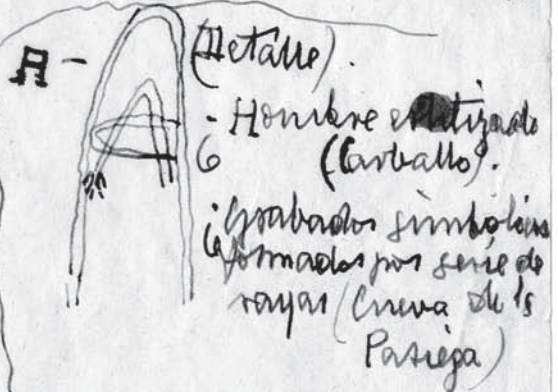 A - (Detalle).
- Hombre
6 (Carballo).
- Grabados simbólicos
6 formados por serie de
rayas (Cueva de la
Pasiega)